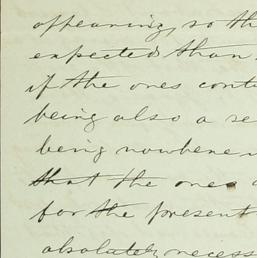 appearing, so th
expected than
if the ones cont
being also a se
being nowhere
that the ones
for the present
absolutely necess